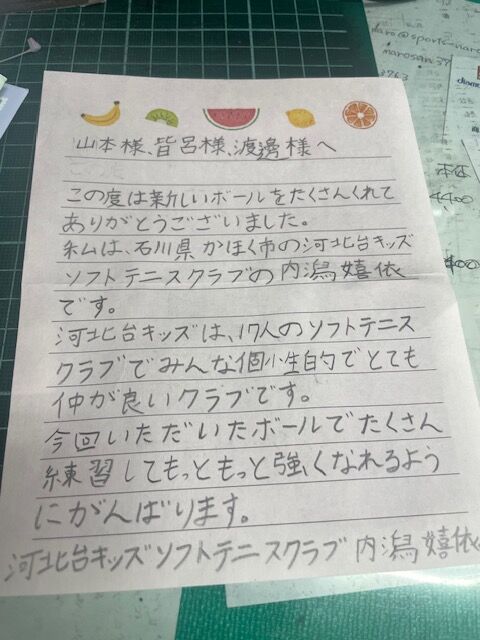 山本様、皆呂様、渡邊様へ
この度は新しいボールをたくさんくれて
ありがとうございました。
私は、石川県かほく市の河北台キッズ
ソフトテニスクラブの内潟嬉依
です。
河北台キッズは、17人のソフトテニス
クラブでみんな個性的でとても
仲が良いクラブです。
今回いただいたボールでたくさん
練習してもっともっと強くなれるよう
にがんばります。
河北台キッズソフトテニスクラブ 内潟嬉依
maro@sports-maro
marosan37
3763
本体
4400